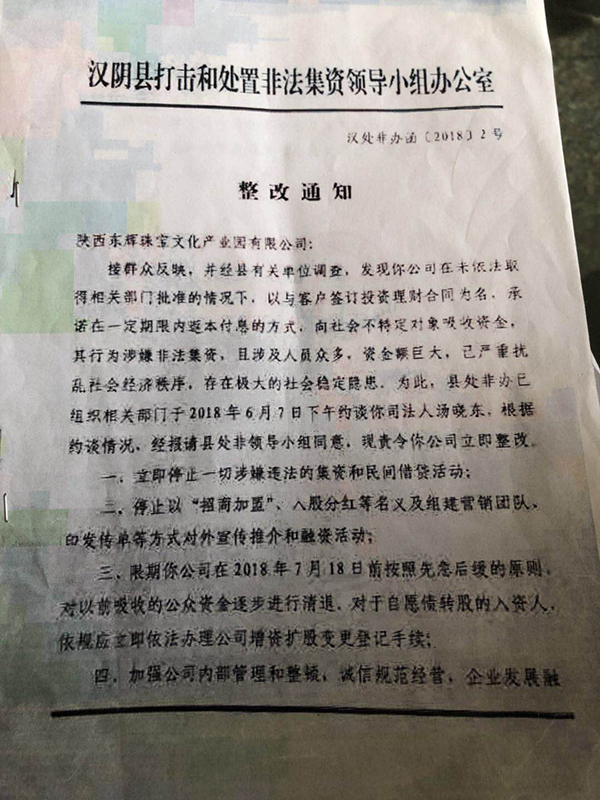 汉阴县打击和处置非法集资领导小组办公室
汉处非办函〔2018〕2号
整改通知
陕西东辉珠宝文化产业园有限公司:
接群众反映，并经县有关单位调查，发现你公司在未依法取
得相关部门批准的情况下，以与客户签订投资理财合同为名，承
诺在一定期限内返本付息的方式，向社会不特定对象吸收资金，
其行为涉嫌非法集资，且涉及人员众多，资金额巨大，已严重扰
乱社会经济秩序，存在极大的社会稳定隐患。为此，县处非办已
组织相关部门于2018年6月7日下午约谈你司法人汤晓东，根据
约谈情况，经报请县处非领导小组同意，现责令你公司立即整改。
一、立即停止一切涉嫌违法的集资和民间借贷活动;
二、停止以“招商加盟”、入股分红等名义及组建营销团队、
印发传单等方式对外宣传推介和融资活动;
三、限期你公司在2018年7月18日前按照先急后缓的原则，
对以前吸收的公众资金逐步进行清退，对于自愿债转股的入资人，
依规应立即依法办理公司增资扩股变更登记手续;
四、加强公司内部管理和整顿，诚信规范经营，企业发展融